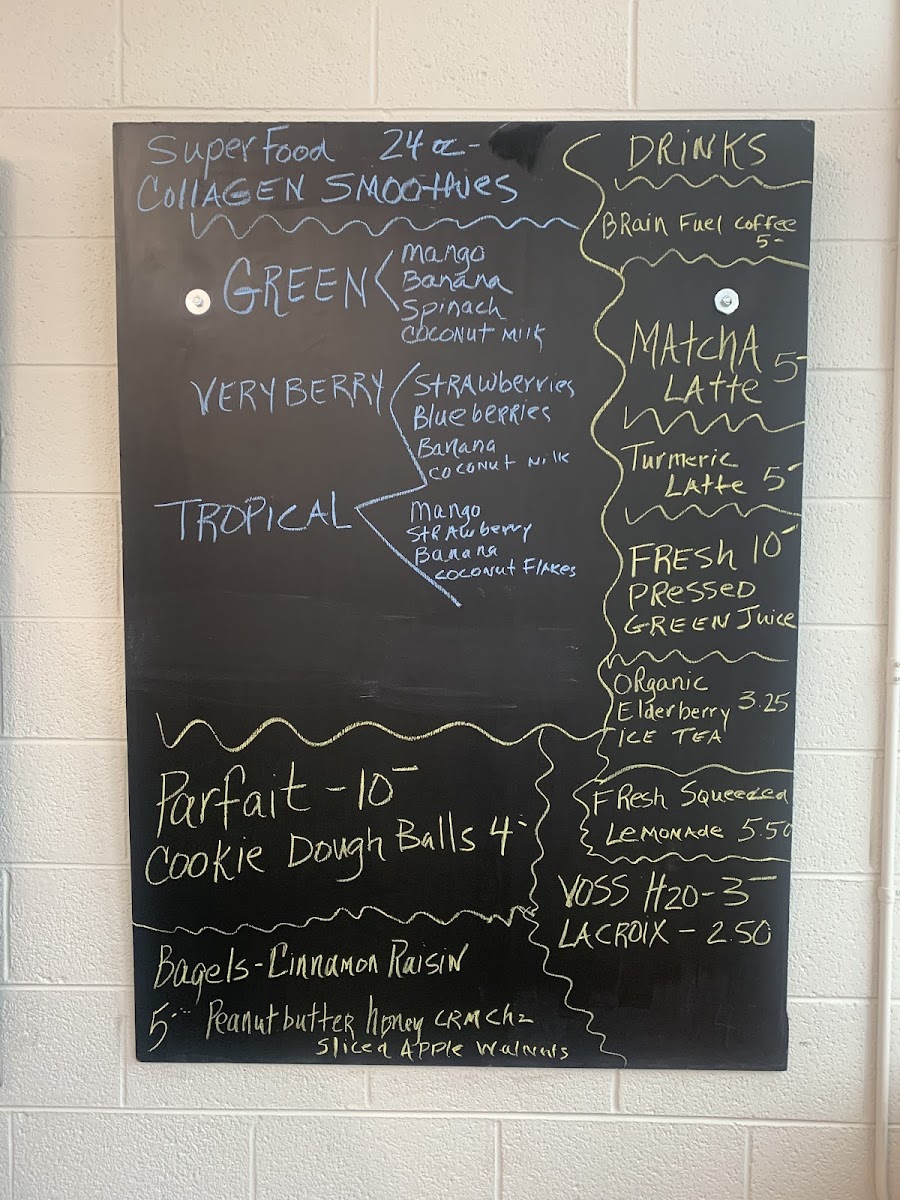 SuperFood 24oz-
COllAGEN SMOOthies
GREEN
Mango
Banana
Spinach
COCONUT Milk
VERY BERRY
StRAwberries
Blueberries
Banana
COCONUT Milk
TROPICAL
Mango
StRAwberry
Banana
COCONUT FlAKes
Parfait - 10-
COOKiE Dough Balls 4-
Bagels - Cinnamon Raisin
5- Peanutbutter honey CRM Chz
Sliced APPle Walnuts
DRiNKS
BRain Fuel Coffee
5-
MAtchA 5-
LAtte
Turmeric
LAtte 5-
FRESH 10-
PRESSED
GREEN Juice
ORganic
Elderberry 3.25
ICE TEA
FResh Squeezed
LEMONADE 5.50
VOSS H20-3-
LACROIX - 2.50